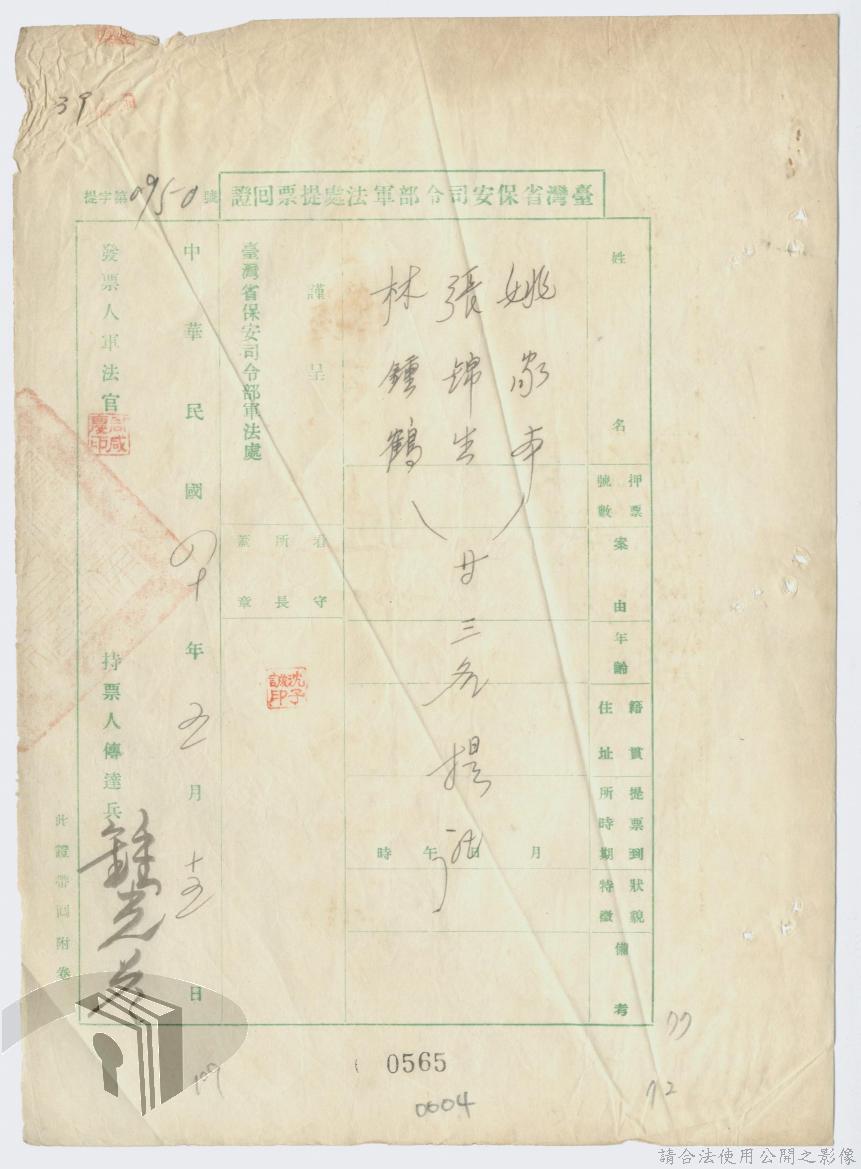 39
臺灣省保安司令部軍法處提票回證
提字第0950號
姓名
押票號數
案由
年齡
籍貫住址
提票到所時期
狀貌特徵
備考
姚家本
張錦生
林鍾鶴
(廿三名提訊)
月日午時
謹呈
臺灣省保安司令部軍法處
看守所長蓋章
沈子誠印
中華民國四十年五月十五日
發票人軍法官
周咸慶印
持票人傳達兵
鍾光
此證帶回附卷
77
0565
0004
109
72
請合法使用公開之影像